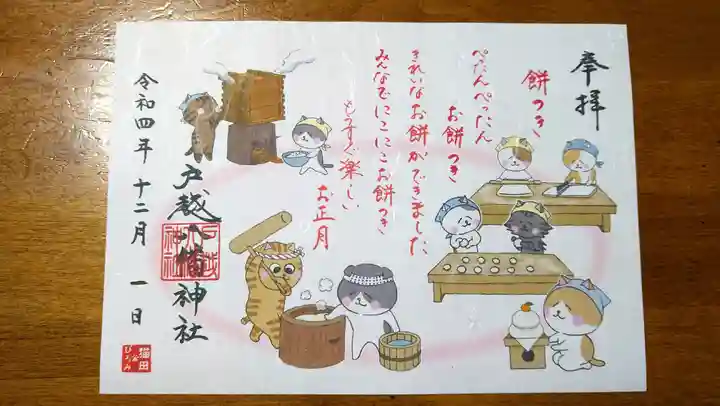 奉拝
餅つき
ぺったんぺったん
お餅つき
きれいなお餅ができました
みんなでにこにこお餅つき
もうすぐ楽しい
お正月
戸越八幡神社
令和四年十二月一日